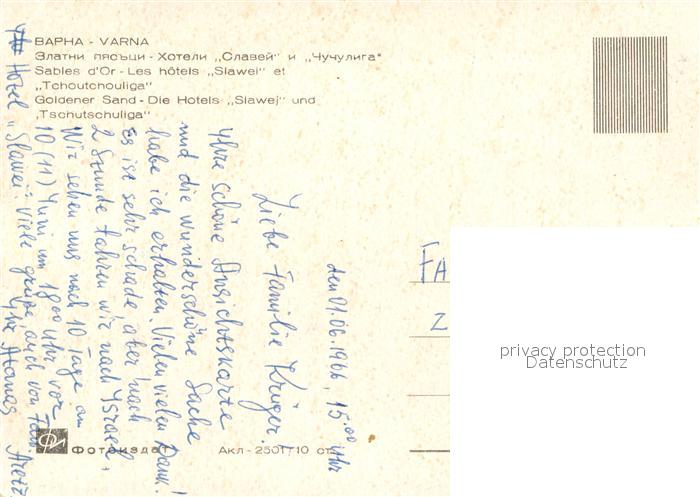 ВАРНА - VARNA
Златни пясъци - Хотели „Славей“ и „Чучулига“
Sables d'Or - Les hôtels „Slawei“ et
„Tchoutchouliga“
Goldener Sand - Die Hotels „Slawej“ und
„Tschutschuliga“
den 01.06.1966, 15.00 Uhr
Liebe Familie Krüger.
Ihre schöne Ansichtskarte
und die wunderschöne Sache
habe ich erhalten. Vielen vielen Dank!
Es ist sehr schade, aber nach
2 Stunde fahren wir nach Israel,
Wir sehen uns nach 10 Tage am
10 (11) Juni um 18 00 Uhr vor
Hotel „Slawei“. Viele grüße, auch von Fam.
Ihr
FA
Z
privacy protection
Datenschutz
Фотоиздат
Акл - 2501710 ст.